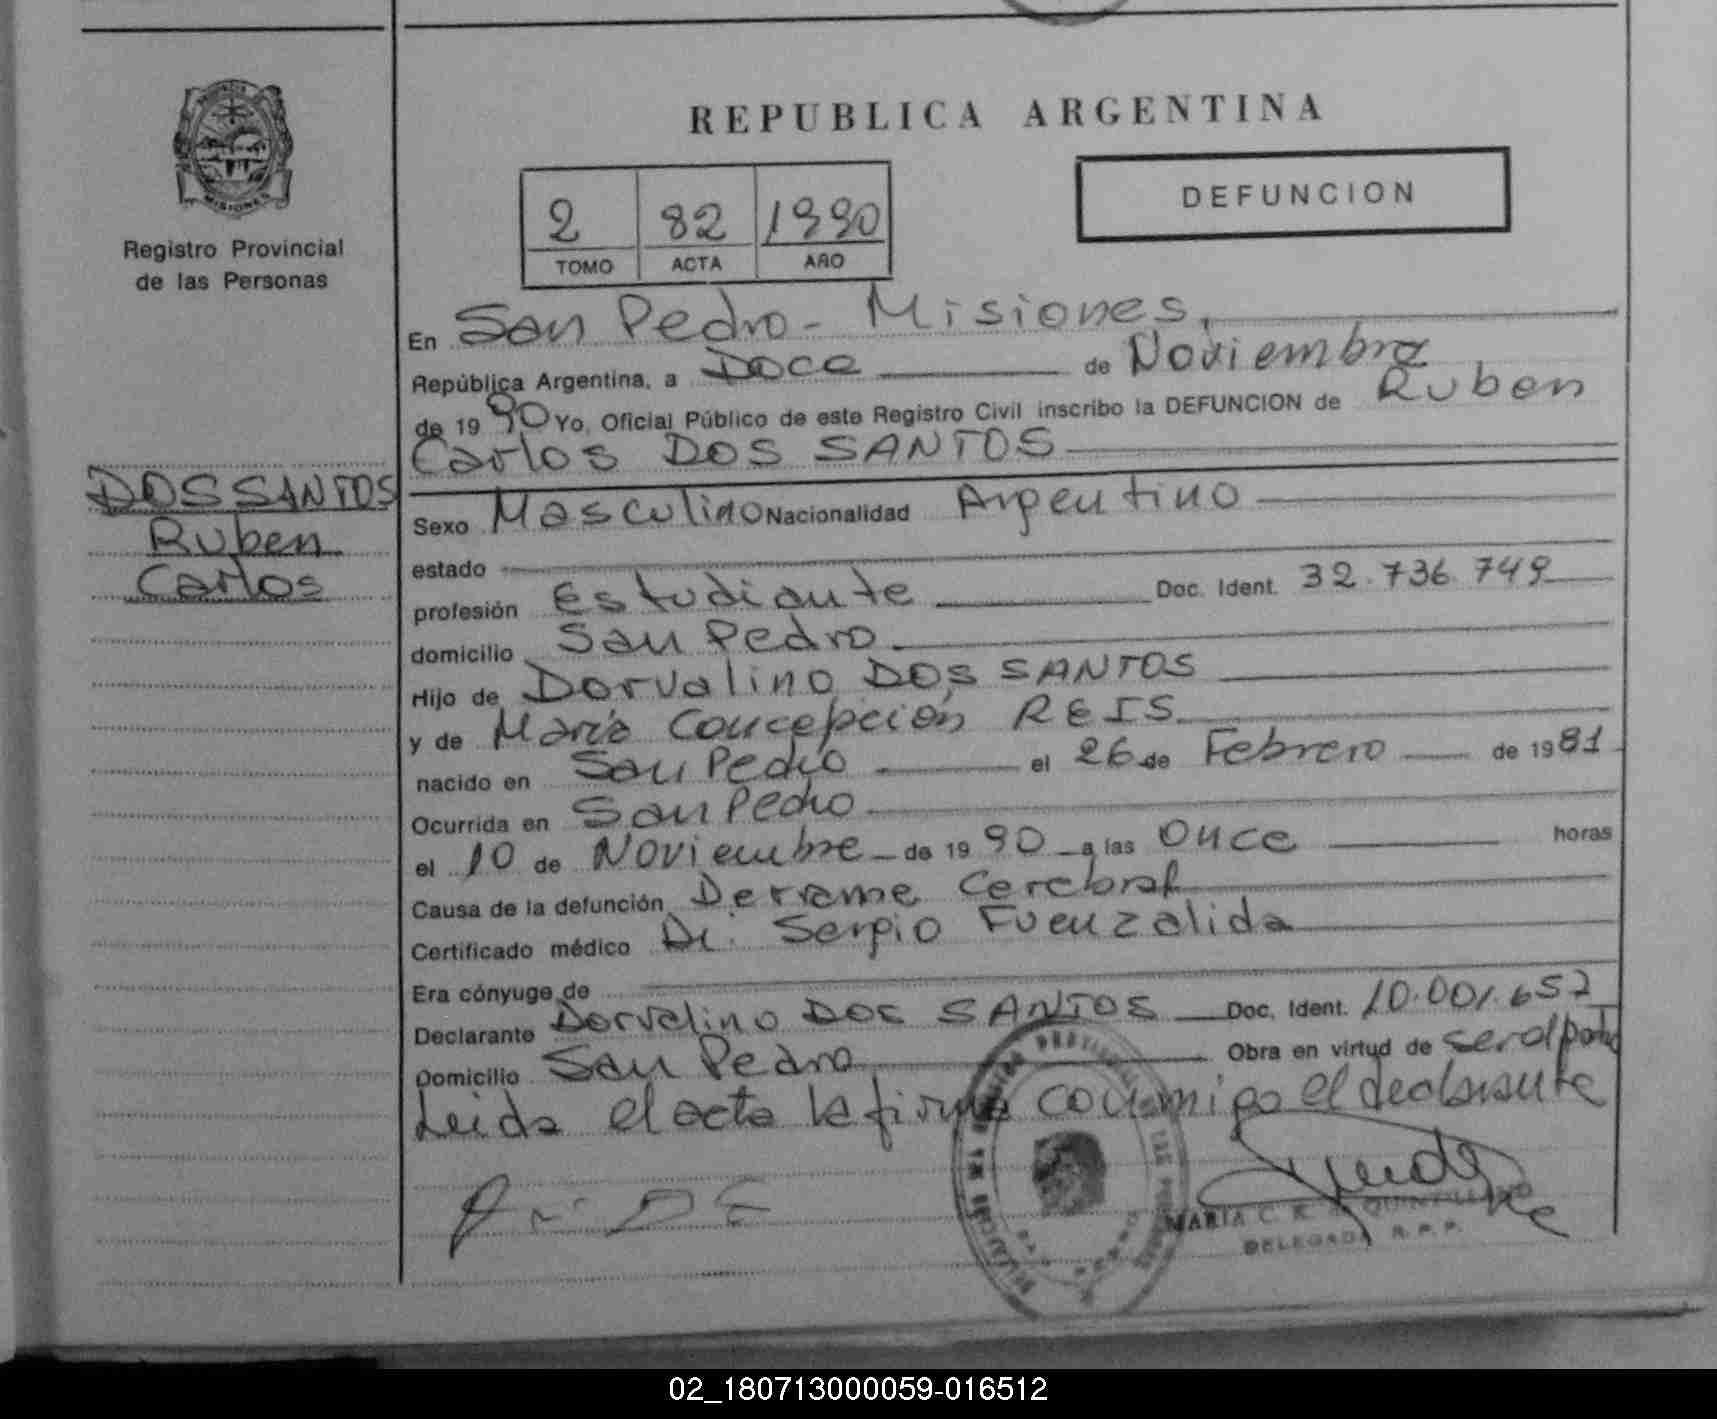 REPUBLICA ARGENTINA
MISIONES
Registro Provincial
de las Personas
2 82 1990
TOMO ACTA AÑO
DEFUNCION
En San Pedro - Misiones,
República Argentina, a Doce de Noviembre
de 19 90 Yo, Oficial Público de este Registro Civil inscribo la DEFUNCION de Ruben
Carlos DOS SANTOS
DOS SANTOS
Ruben
Carlos
Sexo Masculino Nacionalidad Argentino
estado
profesión Estudiante Doc. Ident. 32.736.749
domicilio San Pedro
Hijo de Dorvalino DOS SANTOS
y de María Concepción REIS
nacido en San Pedro el 26 de Febrero de 1981
Ocurrida en San Pedro
el 10 de Noviembre de 19 90 a las Once horas
Causa de la defunción Derrame Cerebral
Certificado médico Dr. Sergio Fuenzalida
Era cónyuge de
Declarante Dorvalino DOS SANTOS Doc. Ident. 10.001.657
Domicilio San Pedro Obra en virtud de ser el padre
Leida el acta la firma conmigo el declarante
MARIA C. R. QUINTILIANO
DELEGADA R.P.P.
02_180713000059-016512